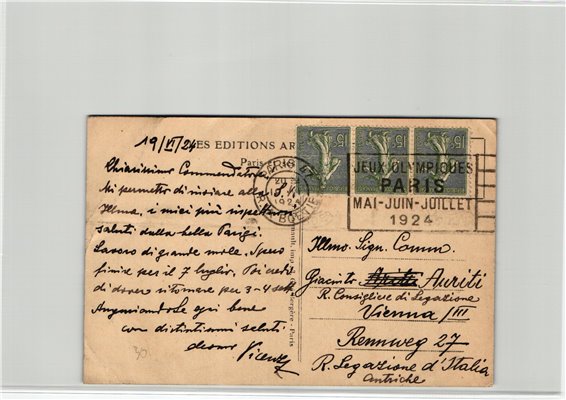 19/VI/24
LES EDITIONS AR
Paris
Chiarissimo Commendatore
Mi permetto di inviare alla S. V.
Illma, i miei più rispettosi
saluti dalla bella Parigi.
Lavoro di grande mole. Spero
finire per il 7 luglio. Poi
di dover ritornare per 3-4 sett.
Augurandole ogni bene
con distintissimi saluti
devmo
30
15c 15c 15c
PARIS
1924
R. LA BOETIE
JEUX OLYMPIQUES
PARIS
MAI-JUIN-JUILLET
1924
Bergère - Paris
Illmo. Sign. Comm.
Giacinto Auriti
R. Consigliere di Legazione
Vienna /III
Rennweg 27
R. Legazione d'Italia
Autriche